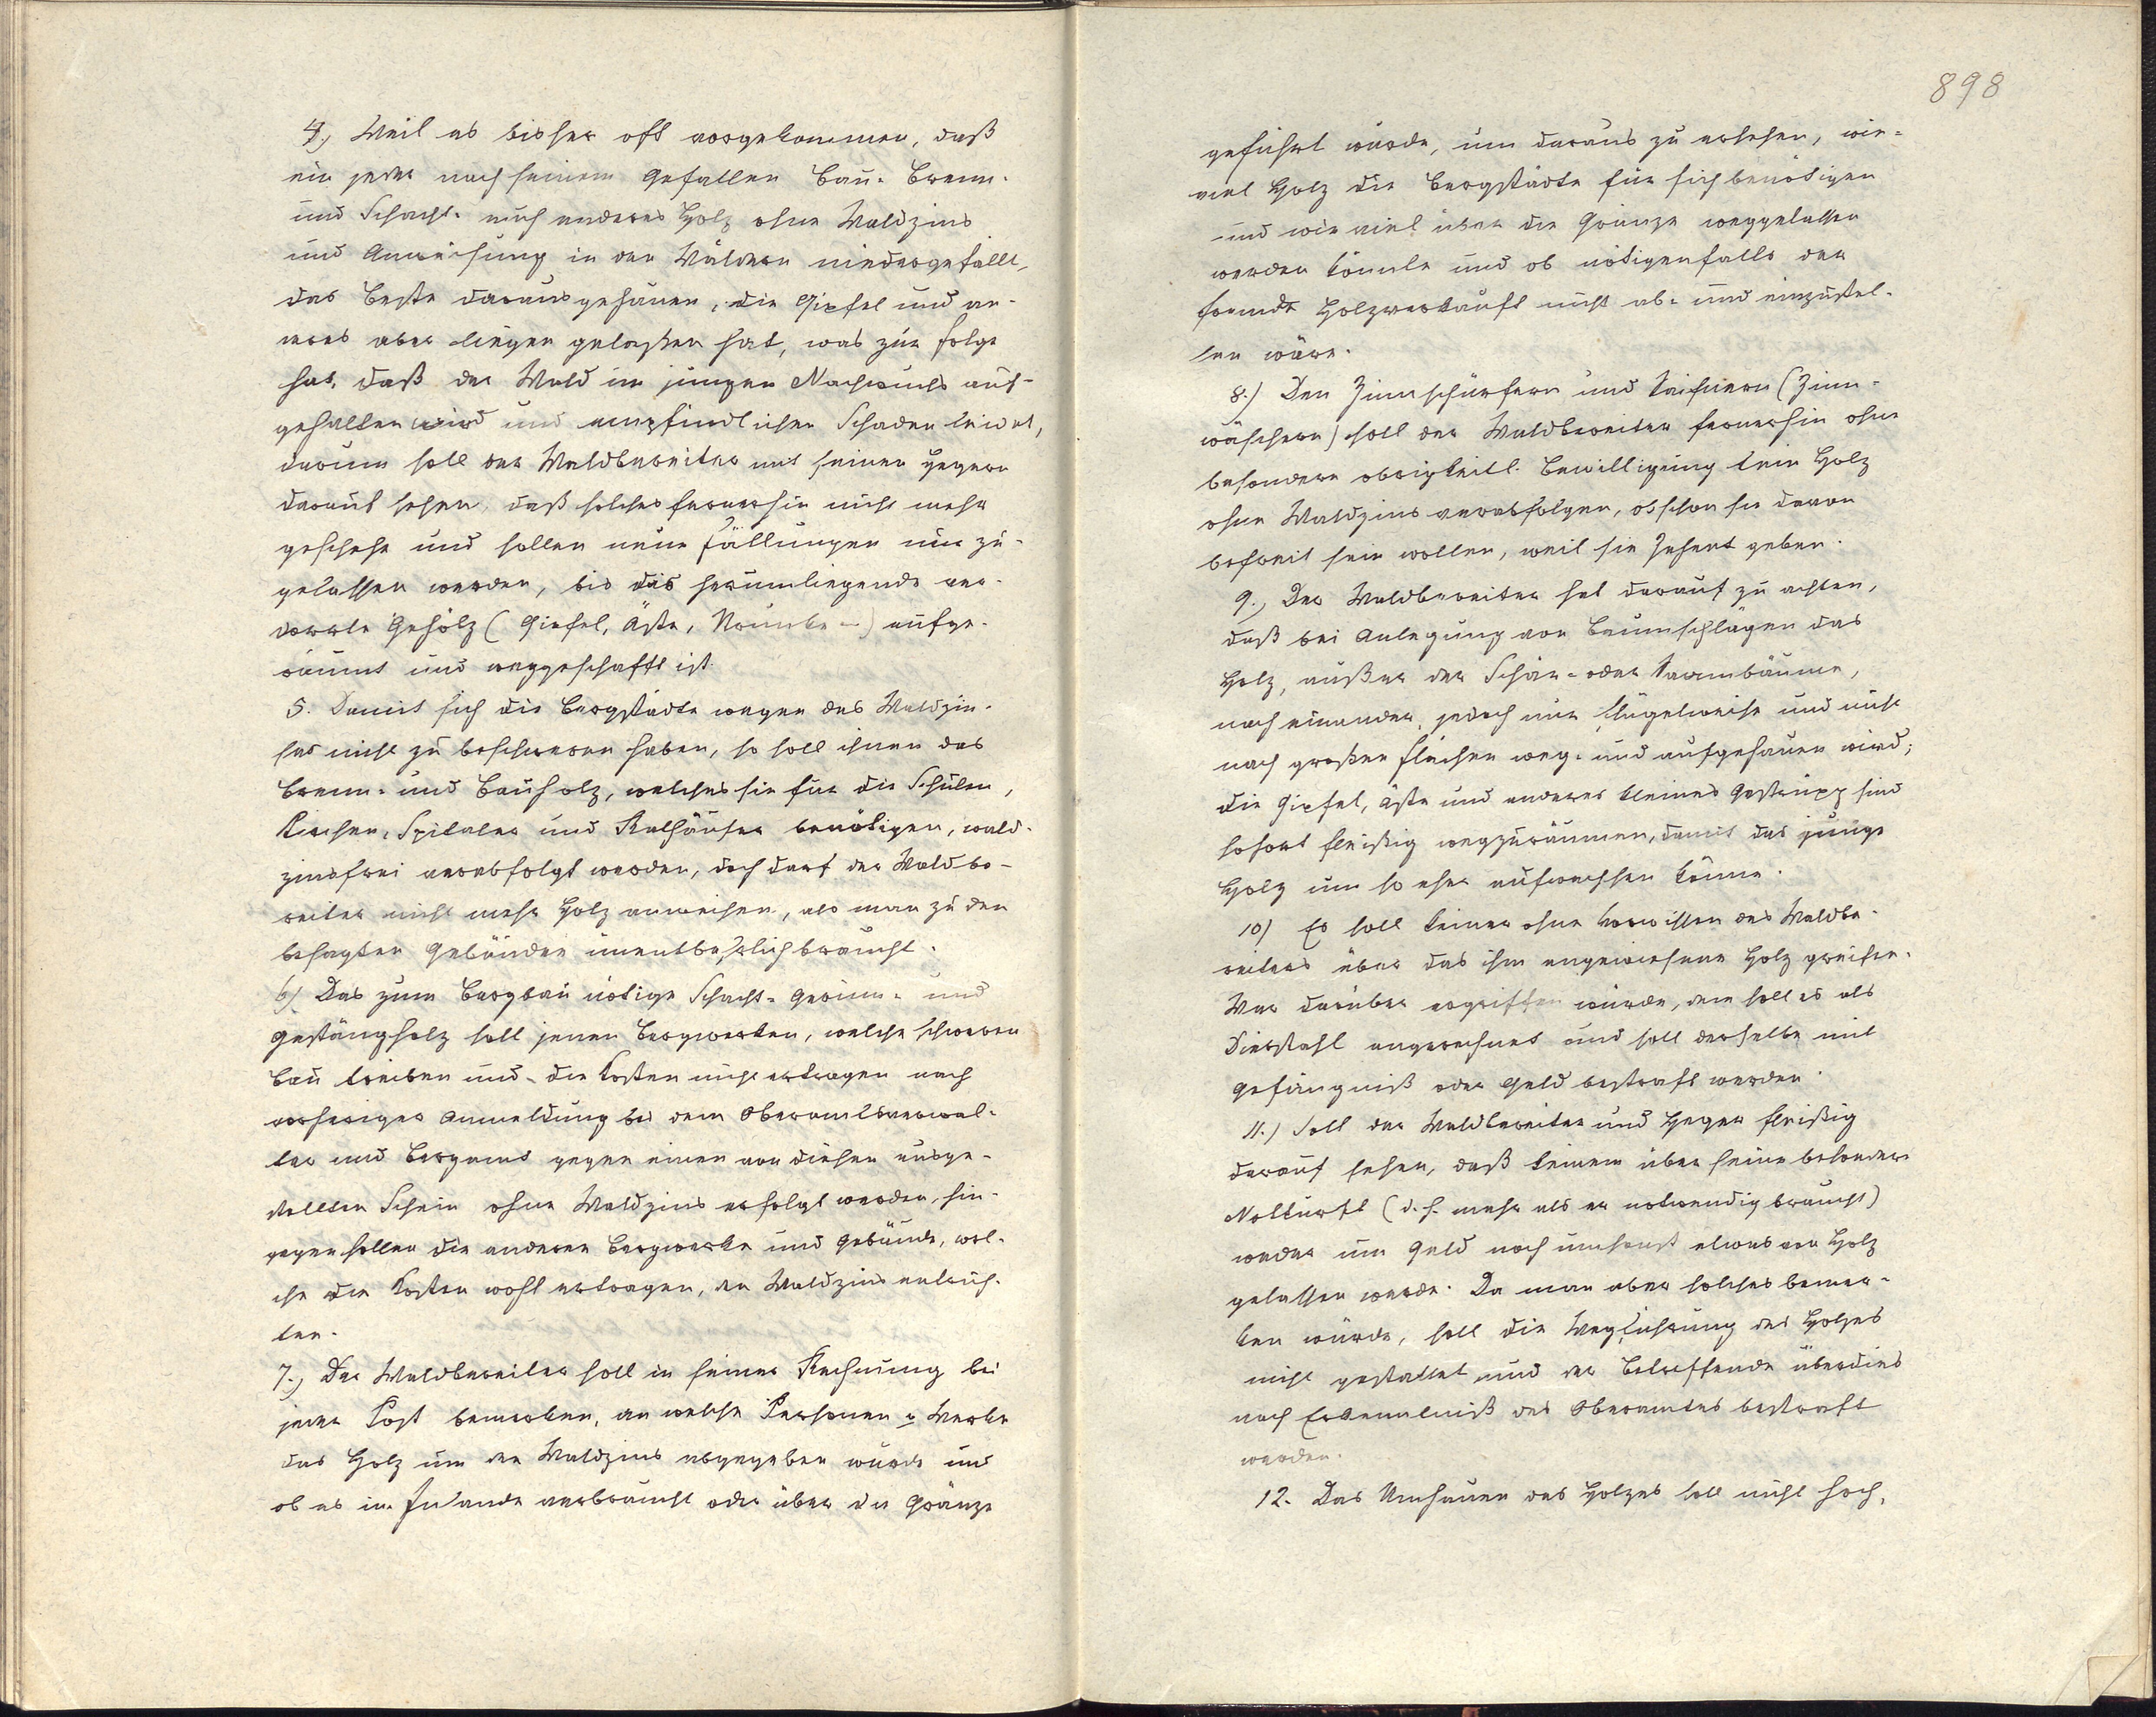 4.) Weil es bisher oft vorgekommen, daß
ein jeder nach seinem Gefallen Bau- Brenn-
und Schacht- auch anderes Holz ohne Waldzins
und Anweisung in den Wäldern niedergefällt,
das Beste daraus gehauen, die Gipfel und an-
deres aber liegen gelaßen hat, was zur Folge
hat, daß der Wald im jungen Nachwuchs auf-
gehalten wird und empfindlichen Schaden leidet,
darum soll der Waldbereiter mit seinen Hegern
darauf sehen, daß solches fernerhin nicht mehr
geschehe und sollen neue Fällungen nie zu-
gelassen werden, bis das herumliegende ver-
dorrte Gehölz (Gipfel, Äste, ) aufge-
räumt und weggeschafft ist.
5. Damit sich die Bergstädte wegen des Waldzin-
ses nicht zu beschweren haben, so soll ihnen das
Brenn- und Bauholz, welches sie für die Schulen,
Kirchen, Spitäler und Rathäuser benötigen, wald-
zinsfrei verabfolgt werden, doch darf der Waldbe-
reiter nicht mehr Holz anweisen, als man zu den
besagten Gebäuden unentbehrlich braucht.
6.) Das zum Bergbau nötige Schacht- Gerinn- und
Gestängholz soll jenen Bergwerken, welche schweren
Bau treiben und die Kosten nicht ertragen nach
vorheriger Anmeldung bei dem Oberamtsverwal-
ter und Bergamt gegen einen von diesen ausge-
stellten Schein ohne Waldzins erfolgt werden, hin-
gegen sollen die anderen Bergwerke und Gebäude, wel-
che die Kosten wohl ertragen, den Waldzins entrich-
ten.
7.) Der Waldbereiter soll in seiner Rechnung bei
jeder Post bemerken, an welche Personen u Werke
das Holz um den Waldzins abgegeben wurde und
ob es im Inlande verbraucht oder über die Gränze
898
geführt wurde, um daraus zu ersehen, wie-
viel Holz die Bergstädte für sich benötigen
und wie viel über die Gränze weggelassen
werden könnte und ob nötigenfalls der
fremde Holzverkauft nicht ab- und einzustel-
len wäre.
8.) Den Zinnschürfern und Saifnern (Zinn-
wäschern) soll der Waldbereiter fernerhin ohne
besondere obrigkeitl. Bewilligung kein Holz
ohne Waldzins verabfolgen, obschon sie davon
befreit sein wollen, weil sie Zehent geben.
9.) Der Waldbereiter hat darauf zu achten,
daß bei Anlegung von Baumschlägen das
Holz, außer der Schär- oder Sarmbäume,
nach einander, jedoch nur hügelweise und nicht
nach großen Flächen weg- und aufgehauen wird;
die Gipfel, Äste und anderes kleines Gestrüpp sind
sofort fleißig wegzuräumen, damit das junge
Holz um so eher aufwachsen könne.
10) Es soll keiner ohne Vorwissen des Waldbe-
reiters über das ihm angewiesene Holz greifen.
Wer darüber ergriffen würde, dem soll es als
Diebstahl angerechnet und soll derselbe mit
Gefängniß oder Geld bestraft werden.
11.) Soll der Waldbereiter und Heger fleißig
darauf sehen, daß keinem über seine besondere
Notturft (d. h. mehr als er notwendig braucht)
weder um Geld noch umsonst etwas von Holz
gelassen werde. Da man aber solches bemer-
ken würde, soll die Wegführung des Holzes
nicht gestattet und der Betreffende überdies
nach Erkenntniß des Oberamtes bestraft
werden.
12. Das Umhauen des Holzes soll nicht hoch,